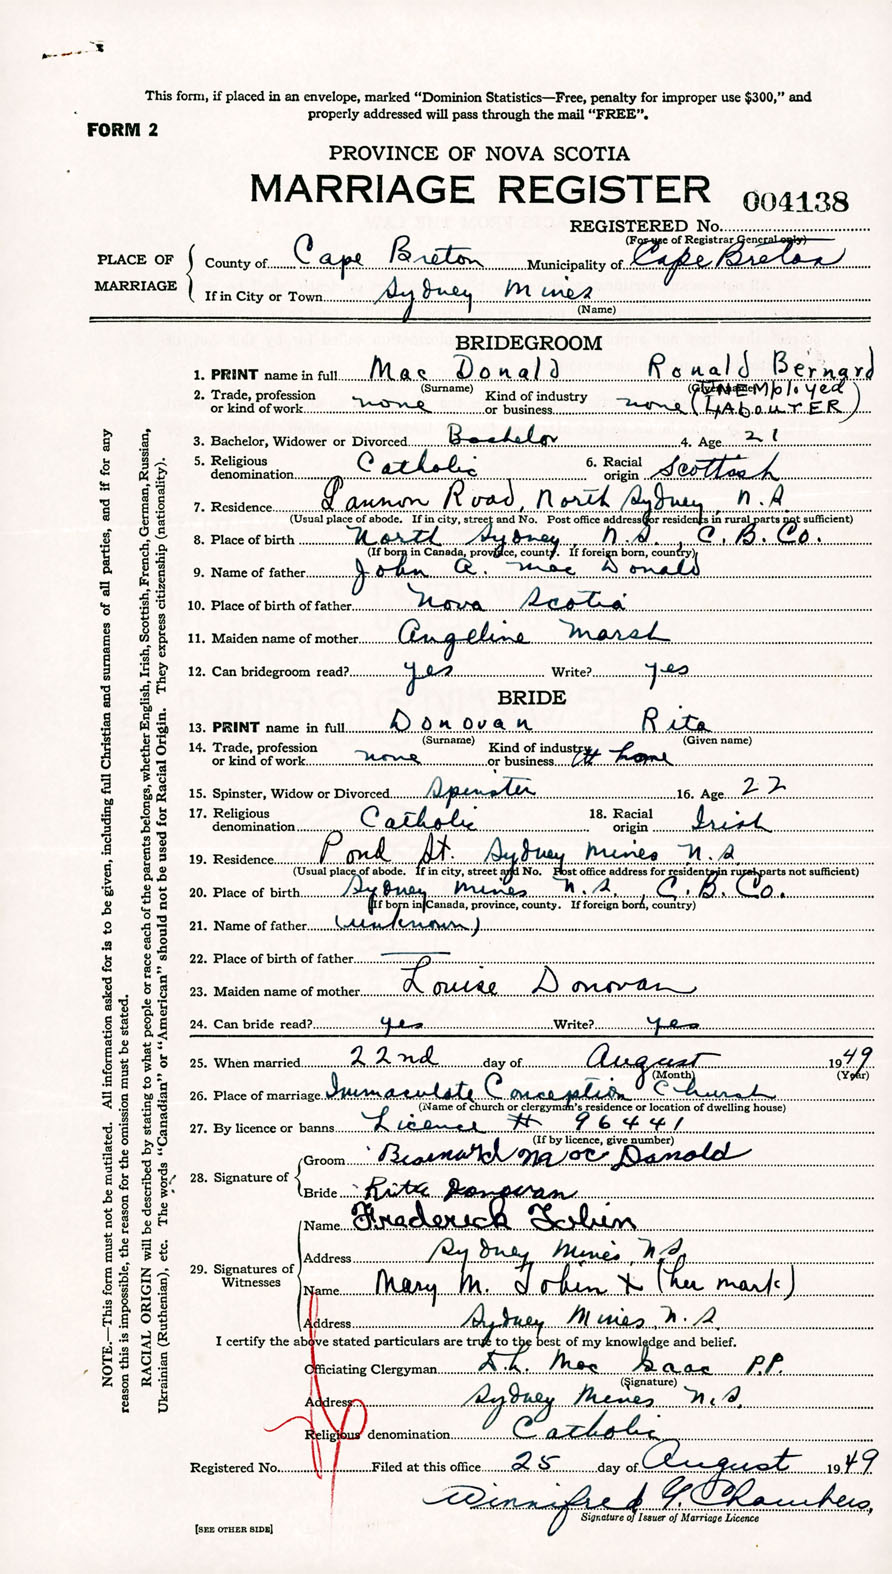 This form, if placed in an envelope, marked "Dominion Statistics—Free, penalty for improper use $300," and
properly addressed will pass through the mail "FREE".
FORM 2
PROVINCE OF NOVA SCOTIA
MARRIAGE REGISTER 004138
REGISTERED No.
(For use of Registrar General only)
PLACE OF MARRIAGE
County of Cape Breton Municipality of Cape Breton
If in City or Town Sydney Mines
(Name)
BRIDEGROOM
1. PRINT name in full Mac Donald Ronald Bernard
(Surname) (Given name)
2. Trade, profession or kind of work none Kind of industry or business none (UNEMployed LAbourER)
3. Bachelor, Widower or Divorced Bachelor 4. Age 21
5. Religious denomination Catholic 6. Racial origin Scottish
7. Residence Lannon Road, North Sydney, N.S.
(Usual place of abode. If in city, street and No. Post office address for residents in rural parts not sufficient)
8. Place of birth North Sydney, N.S., C.B. Co.
(If born in Canada, province, county. If foreign born, country)
9. Name of father John A. Mac Donald
10. Place of birth of father Nova Scotia
11. Maiden name of mother Angeline Marsh
12. Can bridegroom read? yes Write? yes
BRIDE
13. PRINT name in full Donovan Rita
(Surname) (Given name)
14. Trade, profession or kind of work none Kind of industry or business At home
15. Spinster, Widow or Divorced Spinster 16. Age 22
17. Religious denomination Catholic 18. Racial origin Irish
19. Residence Pond St. Sydney Mines N.S
(Usual place of abode. If in city, street and No. Post office address for residents in rural parts not sufficient)
20. Place of birth Sydney Mines N.S., C.B. Co.
(If born in Canada, province, county. If foreign born, country)
21. Name of father (unknown)
22. Place of birth of father
23. Maiden name of mother Louise Donovan
24. Can bride read? yes Write? yes
25. When married 22nd day of August 1949
(Month) (Year)
26. Place of marriage Immaculate Conception Church
(Name of church or clergyman's residence or location of dwelling house)
27. By licence or banns Licence # 96441
(If by licence, give number)
28. Signature of
Groom Bernard Mac Donald
Bride Rita Donovan
29. Signatures of Witnesses
Name Frederick Tobin
Address Sydney Mines, N.S.
Name Mary M. Tobin X (her mark)
Address Sydney Mines, N.S.
I certify the above stated particulars are true to the best of my knowledge and belief.
Officiating Clergyman Mac Isaac P.P.
(Signature)
Address Sydney Mines N.S.
Religious denomination Catholic
Registered No. Filed at this office 25 day of August 1949
Winnifred G. Chambers,
Signature of Issuer of Marriage Licence
[SEE OTHER SIDE]
NOTE.—This form must not be mutilated. All information asked for is to be given, including full Christian and surnames of all parties, and if for any
reason this is impossible, the reason for the omission must be stated.
RACIAL ORIGIN will be described by stating to what people or race each of the parents belongs, whether English, Irish, Scottish, French, German, Russian,
Ukrainian (Ruthenian), etc. The words "Canadian" or "American" should not be used for Racial Origin. They express citizenship (nationality).